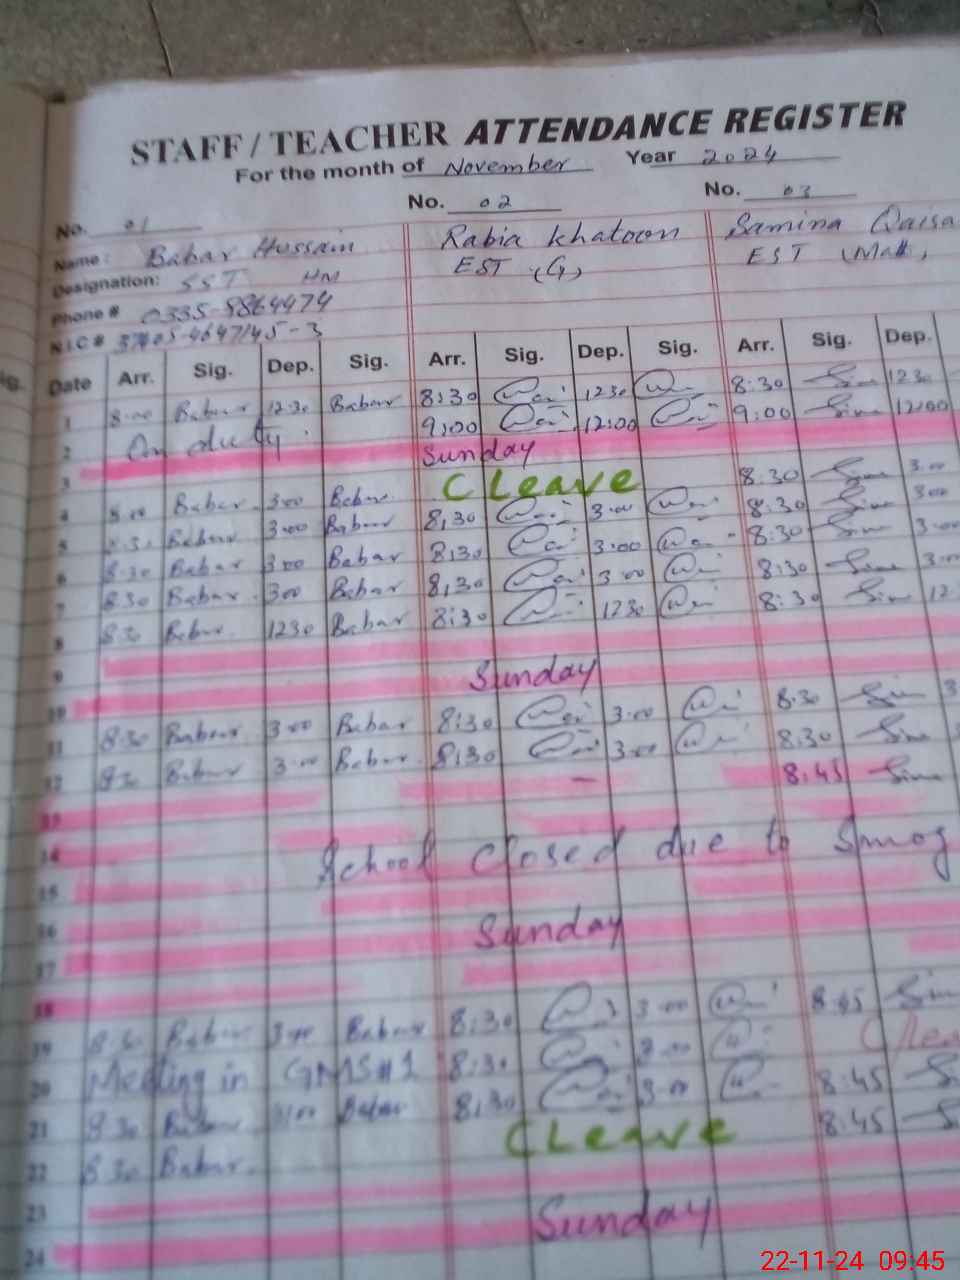 STAFF / TEACHER ATTENDANCE REGISTER
For the month of November Year 2024
No. 01 No. 02 No. 03
Name: Babar Hussain Rabia Khatoon Samina Qaisa
Designation: SST HM EST (G) EST
Phone # 0335-8864474
N.I.C #
Date Arr. Sig. Dep. Sig. Arr. Sig. Dep. Sig. Arr. Sig. Dep.
1 8:00 Babar 12:30 Babar 8:30 1230 8:30 1230
2 On duty 9:00 12:00 9:00 12:00
3 Sunday
4 8:00 Babar 3:00 Babar C Leave 8:30 3:00
5 Babar 3:00 Babar 8:30 3:00 8:30 3:00
6 8:30 Babar 3:00 Babar 8:30 3:00 8:30 3:00
7 8:30 Babar 3:00 Babar 8:30 3:00 8:30 3:00
8 8:30 Babar 1230 Babar 8:30 1230 8:30 12
9
10 Sunday
11 8:30 Babar 3:00 Babar 8:30 3:00 8:30 3
12 8:30 Babar 3:00 Babar 8:30 3:00 8:30
8:45
13
14 School closed due to Smog
15
16
17 Sunday
18
19 8:30 Babar 3:00 Babar 8:30 3:00 8:45
20 Meeting in GMS#1 8:30 3:00 C lea
21 8:30 Babar 3:00 Babar 8:30 3:00 8:45
22 8:30 Babar C Leave 8:45
23
24 Sunday
22-11-24 09:45